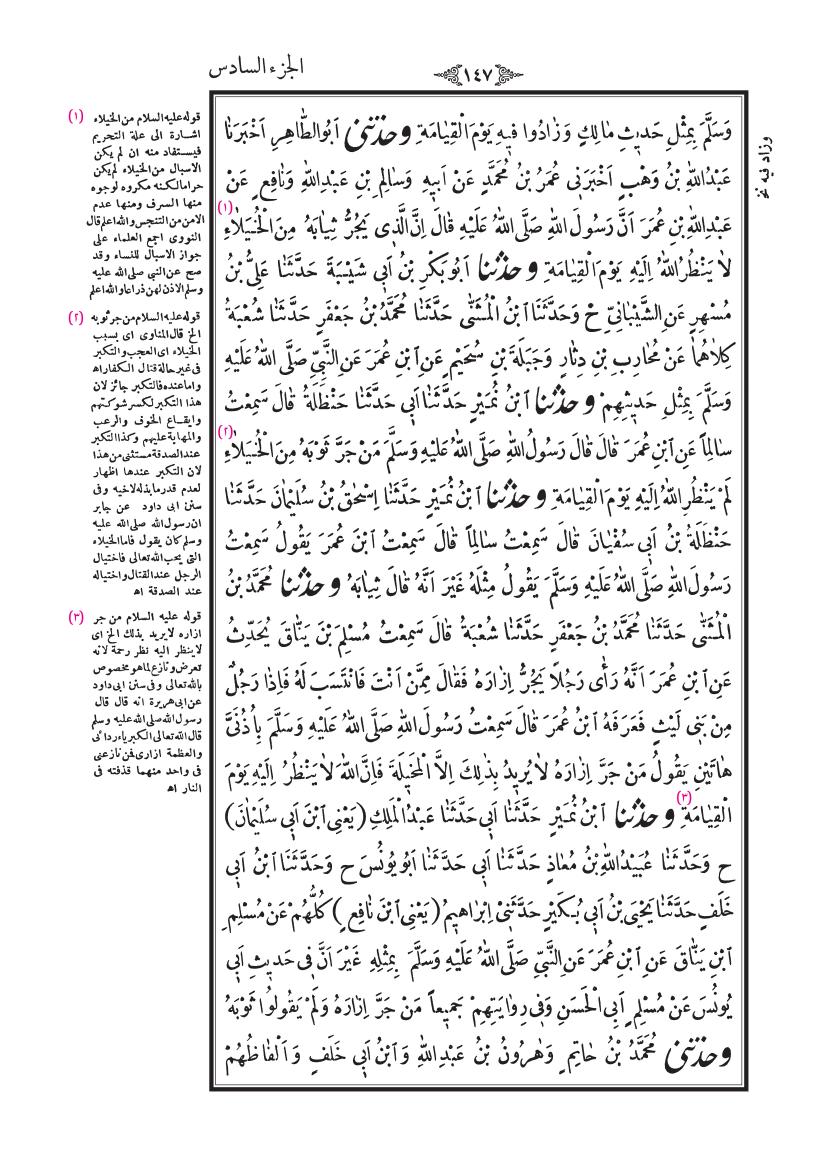 الجزء السادس
١٤٧
وَسَلَّمَ بِمِثْلِ حَدِيثِ مَالِكٍ وَزَادُوا فِيهِ يَوْمَ الْقِيَامَةِ وحدثنى اَبُوالطَّاهِرِ اَخْبَرَنَا
عَبْدُاللهِ بْنُ وَهْبٍ اَخْبَرَنِى عُمَرُ بْنُ مُحَمَّدٍ عَنْ اَبِيهِ وَسَالِمِ بْنِ عَبْدِاللهِ وَنَافِعٍ عَنْ
عَبْدِاللهِ بْنِ عُمَرَ اَنَّ رَسُولَ اللهِ صَلَّى اللهُ عَلَيْهِ قَالَ اِنَّ الَّذِى يَجُرُّ ثِيَابَهُ مِنَ الْخُيَلَاءِ (١)
لَا يَنْظُرُ اللهُ اِلَيْهِ يَوْمَ الْقِيَامَةِ وحدثنا اَبُوبَكْرِ بْنُ اَبِى شَيْبَةَ حَدَّثَنَا عَلِىُّ بْنُ
مُسْهِرٍ عَنِ الشَّيْبَانِىِّ ح وَحَدَّثَنَا ابْنُ الْمُثَنَّى حَدَّثَنَا مُحَمَّدُ بْنُ جَعْفَرٍ حَدَّثَنَا شُعْبَةُ
كِلَاهُمَا عَنْ مُحَارِبِ بْنِ دِثَارٍ وَجَبَلَةَ بْنِ سُحَيْمٍ عَنِ ابْنِ عُمَرَ عَنِ النَّبِىِّ صَلَّى اللهُ عَلَيْهِ
وَسَلَّمَ بِمِثْلِ حَدِيثِهِمْ وحدثنا ابْنُ نُمَيْرٍ حَدَّثَنَا اَبِى حَدَّثَنَا حَنْظَلَةُ قَالَ سَمِعْتُ
سَالِماً عَنِ ابْنِ عُمَرَ قَالَ قَالَ رَسُولُ اللهِ صَلَّى اللهُ عَلَيْهِ وَسَلَّمَ مَنْ جَرَّ ثَوْبَهُ مِنَ الْخُيَلَاءِ (٢)
لَمْ يَنْظُرِ اللهُ اِلَيْهِ يَوْمَ الْقِيَامَةِ وحدثنا ابْنُ نُمَيْرٍ حَدَّثَنَا اِسْحٰقُ بْنُ سُلَيْمَانَ حَدَّثَنَا
حَنْظَلَةُ بْنُ اَبِى سُفْيَانَ قَالَ سَمِعْتُ سَالِماً قَالَ سَمِعْتُ ابْنَ عُمَرَ يَقُولُ سَمِعْتُ
رَسُولَ اللهِ صَلَّى اللهُ عَلَيْهِ وَسَلَّمَ يَقُولُ مِثْلَهُ غَيْرَ اَنَّهُ قَالَ ثِيَابَهُ وحدثنا مُحَمَّدُ بْنُ
الْمُثَنَّى حَدَّثَنَا مُحَمَّدُ بْنُ جَعْفَرٍ حَدَّثَنَا شُعْبَةُ قَالَ سَمِعْتُ مُسْلِمَ بْنَ يَنَّاقَ يُحَدِّثُ
عَنِ ابْنِ عُمَرَ اَنَّهُ رَأَى رَجُلاً يَجُرُّ اِزَارَهُ فَقَالَ مِمَّنْ اَنْتَ فَانْتَسَبَ لَهُ فَاِذَا رَجُلٌ
مِنْ بَنِى لَيْثٍ فَعَرَفَهُ ابْنُ عُمَرَ قَالَ سَمِعْتُ رَسُولَ اللهِ صَلَّى اللهُ عَلَيْهِ وَسَلَّمَ بِاُذُنَىَّ
هَاتَيْنِ يَقُولُ مَنْ جَرَّ اِزَارَهُ لَا يُرِيدُ بِذٰلِكَ اِلَّا الْمَخِيلَةَ فَاِنَّ اللهَ لَا يَنْظُرُ اِلَيْهِ يَوْمَ
الْقِيَامَةِ (٣) وحدثنا ابْنُ نُمَيْرٍ حَدَّثَنَا اَبِى حَدَّثَنَا عَبْدُ الْمَلِكِ (يَعْنِى ابْنَ اَبِى سُلَيْمَانَ)
ح وَحَدَّثَنَا عُبَيْدُاللهِ بْنُ مُعَاذٍ حَدَّثَنَا اَبِى حَدَّثَنَا اَبُو يُونُسَ ح وَحَدَّثَنَا ابْنُ اَبِى
خَلَفٍ حَدَّثَنَا يَحْيَى بْنُ اَبِى بُكَيْرٍ حَدَّثَنِى اِبْرَاهِيمُ (يَعْنِى ابْنَ نَافِعٍ) كُلُّهُمْ عَنْ مُسْلِمِ
ابْنِ يَنَّاقَ عَنِ ابْنِ عُمَرَ عَنِ النَّبِىِّ صَلَّى اللهُ عَلَيْهِ وَسَلَّمَ بِمِثْلِهِ غَيْرَ اَنَّ فِى حَدِيثِ اَبِى
يُونُسَ عَنْ مُسْلِمٍ اَبِى الْحَسَنِ وَفِى رِوَايَتِهِمْ جَمِيعاً مَنْ جَرَّ اِزَارَهُ وَلَمْ يَقُولُوا ثَوْبَهُ
وحدثنى مُحَمَّدُ بْنُ حَاتِمٍ وَهٰرُونُ بْنُ عَبْدِاللهِ وَابْنُ اَبِى خَلَفٍ وَاَلْفَاظُهُمْ
وزاد فيه نخ
(١) قوله عليه السلام من الخيلاء
اشارة الى علة التحريم
فيستفاد منه ان لم يكن
الاسبال من الخيلاء لم يكن
حراما لكنه مكروه لوجوه
منها السرف ومنها عدم
الامن من التنجس والله اعلم قال
النووى اجمع العلماء على
جواز الاسبال للنساء وقد
صح عن النبى صلى الله عليه
وسلم الاذن لهن ذراعا والله اعلم
(٢) قوله عليه السلام من جر ثوبه
الخ قال المناوى اى بسبب
الخيلاء اى العجب والتكبر
فى غير حالة قتال الكفار اه
واما عنده فالتكبر جائز لان
هذا التكبر لكسر شوكتهم
وايقاع الخوف والرعب
والمهابة عليهم وكذا التكبر
عند الصدقة مستثنى من هذا
لان التكبر عندها اظهار
لعدم قدر ما بذله لاخيه وفى
سنن ابى داود عن جابر
ان رسول الله صلى الله عليه
وسلم كان يقول فاما الخيلاء
التى يحب الله تعالى فاختيال
الرجل عند القتال واختياله
عند الصدقة اه
(٣) قوله عليه السلام من جر
ازاره لا يريد بذلك الخ اى
لا ينظر اليه نظر رحمة لانه
تعرض ونازع لما هو مخصوص
بالله تعالى وفى سنن ابى داود
عن ابى هريرة انه قال قال
رسول الله صلى الله عليه وسلم
قال الله تعالى الكبرياء ردائى
والعظمة ازارى فمن نازعنى
فى واحد منهما قذفته فى
النار اه